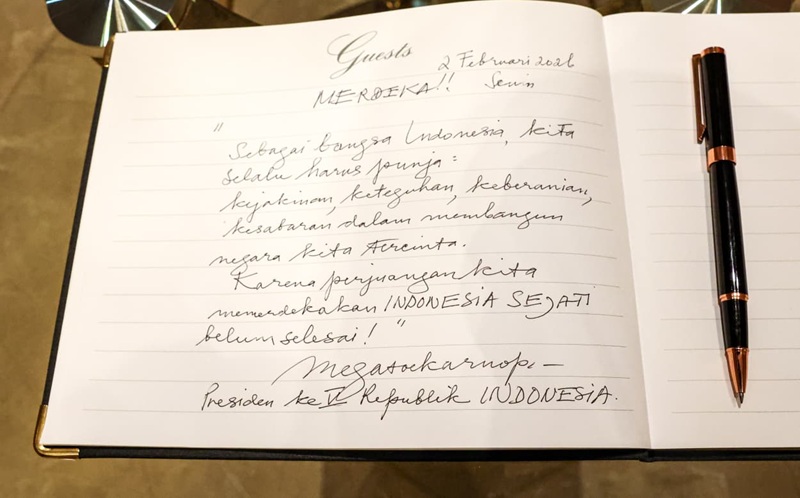 Guests
2 Februari 2026
Senin
MERDEKA!!
"Sebagai bangsa Indonesia, kita
selalu harus punja:
kejakinan, keteguhan, keberanian,
kesabaran dalam membangun
negara kita tercinta.
Karena perjuangan kita
memerdekakan INDONESIA SEJATI
belum selesai!"
Megasoekarnop.
Presiden ke V Republik INDONESIA.